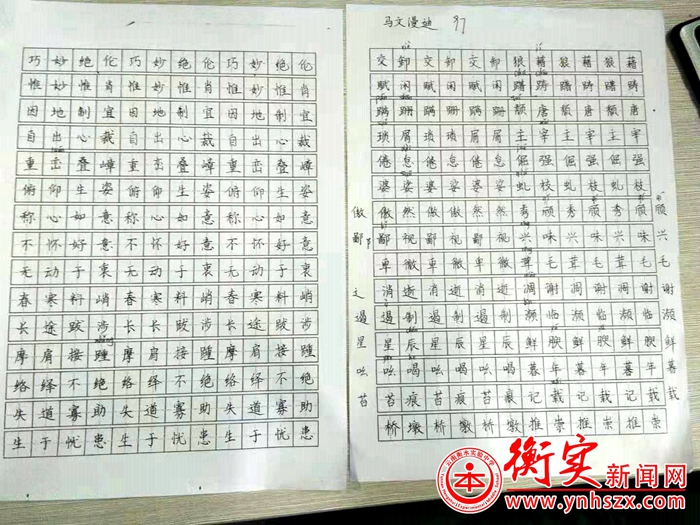 巧妙绝伦巧妙绝伦巧妙绝伦
惟妙惟肖惟妙惟肖惟妙惟肖
因地制宜因地制宜因地制宜
自出心裁自出心裁自出心裁
重峦叠嶂重峦叠嶂重峦叠嶂
俯仰生姿俯仰生姿俯仰生姿
称心如意称心如意称心如意
不怀好意不怀好意不怀好意
无动于衷无动于衷无动于衷
春寒料峭春寒料峭春寒料峭
长途跋涉长途跋涉长途跋涉
摩肩接踵摩肩接踵摩肩接踵
络绎不绝络绎不绝络绎不绝
失道寡助失道寡助失道寡助
生于忧患生于忧患生于忧患
马文漫迪 97
交卸交卸交卸狼藉狼藉狼藉
赋闲赋闲赋闲踌踌
蹒跚蹒跚蹒跚颓唐颓唐颓唐
琐屑琐屑琐屑主宰主宰主宰
倦怠倦怠倦怠倔强倔强倔强
婆娑婆娑婆娑虬枝虬枝虬枝
傲然傲然傲然秀颀秀颀秀颀
鄙视鄙视鄙视兴味兴味兴味兴
卑微卑微卑微茸毛茸毛茸毛
之消逝消逝消逝凋谢凋谢凋谢
遏遏制遏制遏制濒临濒临濒临濒
星星辰星辰星辰鲜腴鲜腴鲜腴鲜
吆吆喝吆喝吆喝暮年暮年暮年暮
苔苔痕苔痕苔痕记载记载记载
桥墩桥墩桥墩推崇推崇推崇
云南衡水实验中学
本
衡实新闻网
www.ynhszx.com